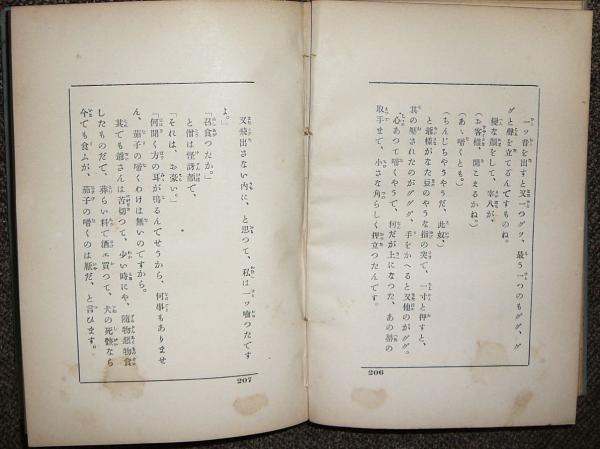 一ツ音を出すと又一つグヽ、最う一つのもグヾ、グ
グと聲を立てるんですものね。
變な顏をして、宰八が、
（お客樣、聞こえるかね。）
（あゝ、囁くとも）
（ちんじちやうやうだ、此奴、）
と爺樣がなた豆のやうな指の尖で、一寸と押すと、
其の壓されたのがググ、手をかへると又他のがググ。
心あつて囁くやうで、何だが上になつた、あの蔕の
取手まで、小さな角らしく押立つたんです。
206
又飛出さない内に、と思つて、私は一ツ噛つたです
よ。」
「召食つたか。」
と僧は怪訝顏で、
「それは、お豪い。」
「何聞く方の耳が鳴るんでせうから、何事もありませ
ん、茄子の囁くわけは無いのですから。
其でも爺さんは苦切つて、少い時にや、隨物惡物食
したものだで、葬らい料で酒ェ買つて、犬の死骸なら
今でも食ふが、茄子の囁くのは厭だ、と言ひます。
207